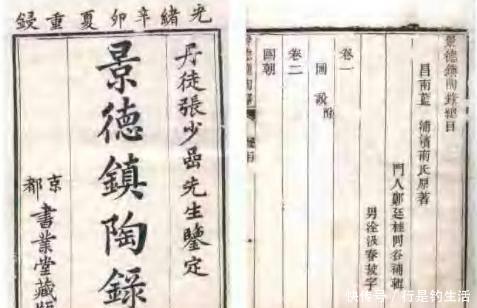 光緒辛卯夏重鋟
丹徒張少嵒先生鑒定
景德鎮陶錄
京都
書業堂藏版
景德鎮陶錄總目
昌南藍 浦濱南氏原著
門人鄭廷桂問谷補輯
卷一
圖說
卷二
國朝
快传号/行是钓生活